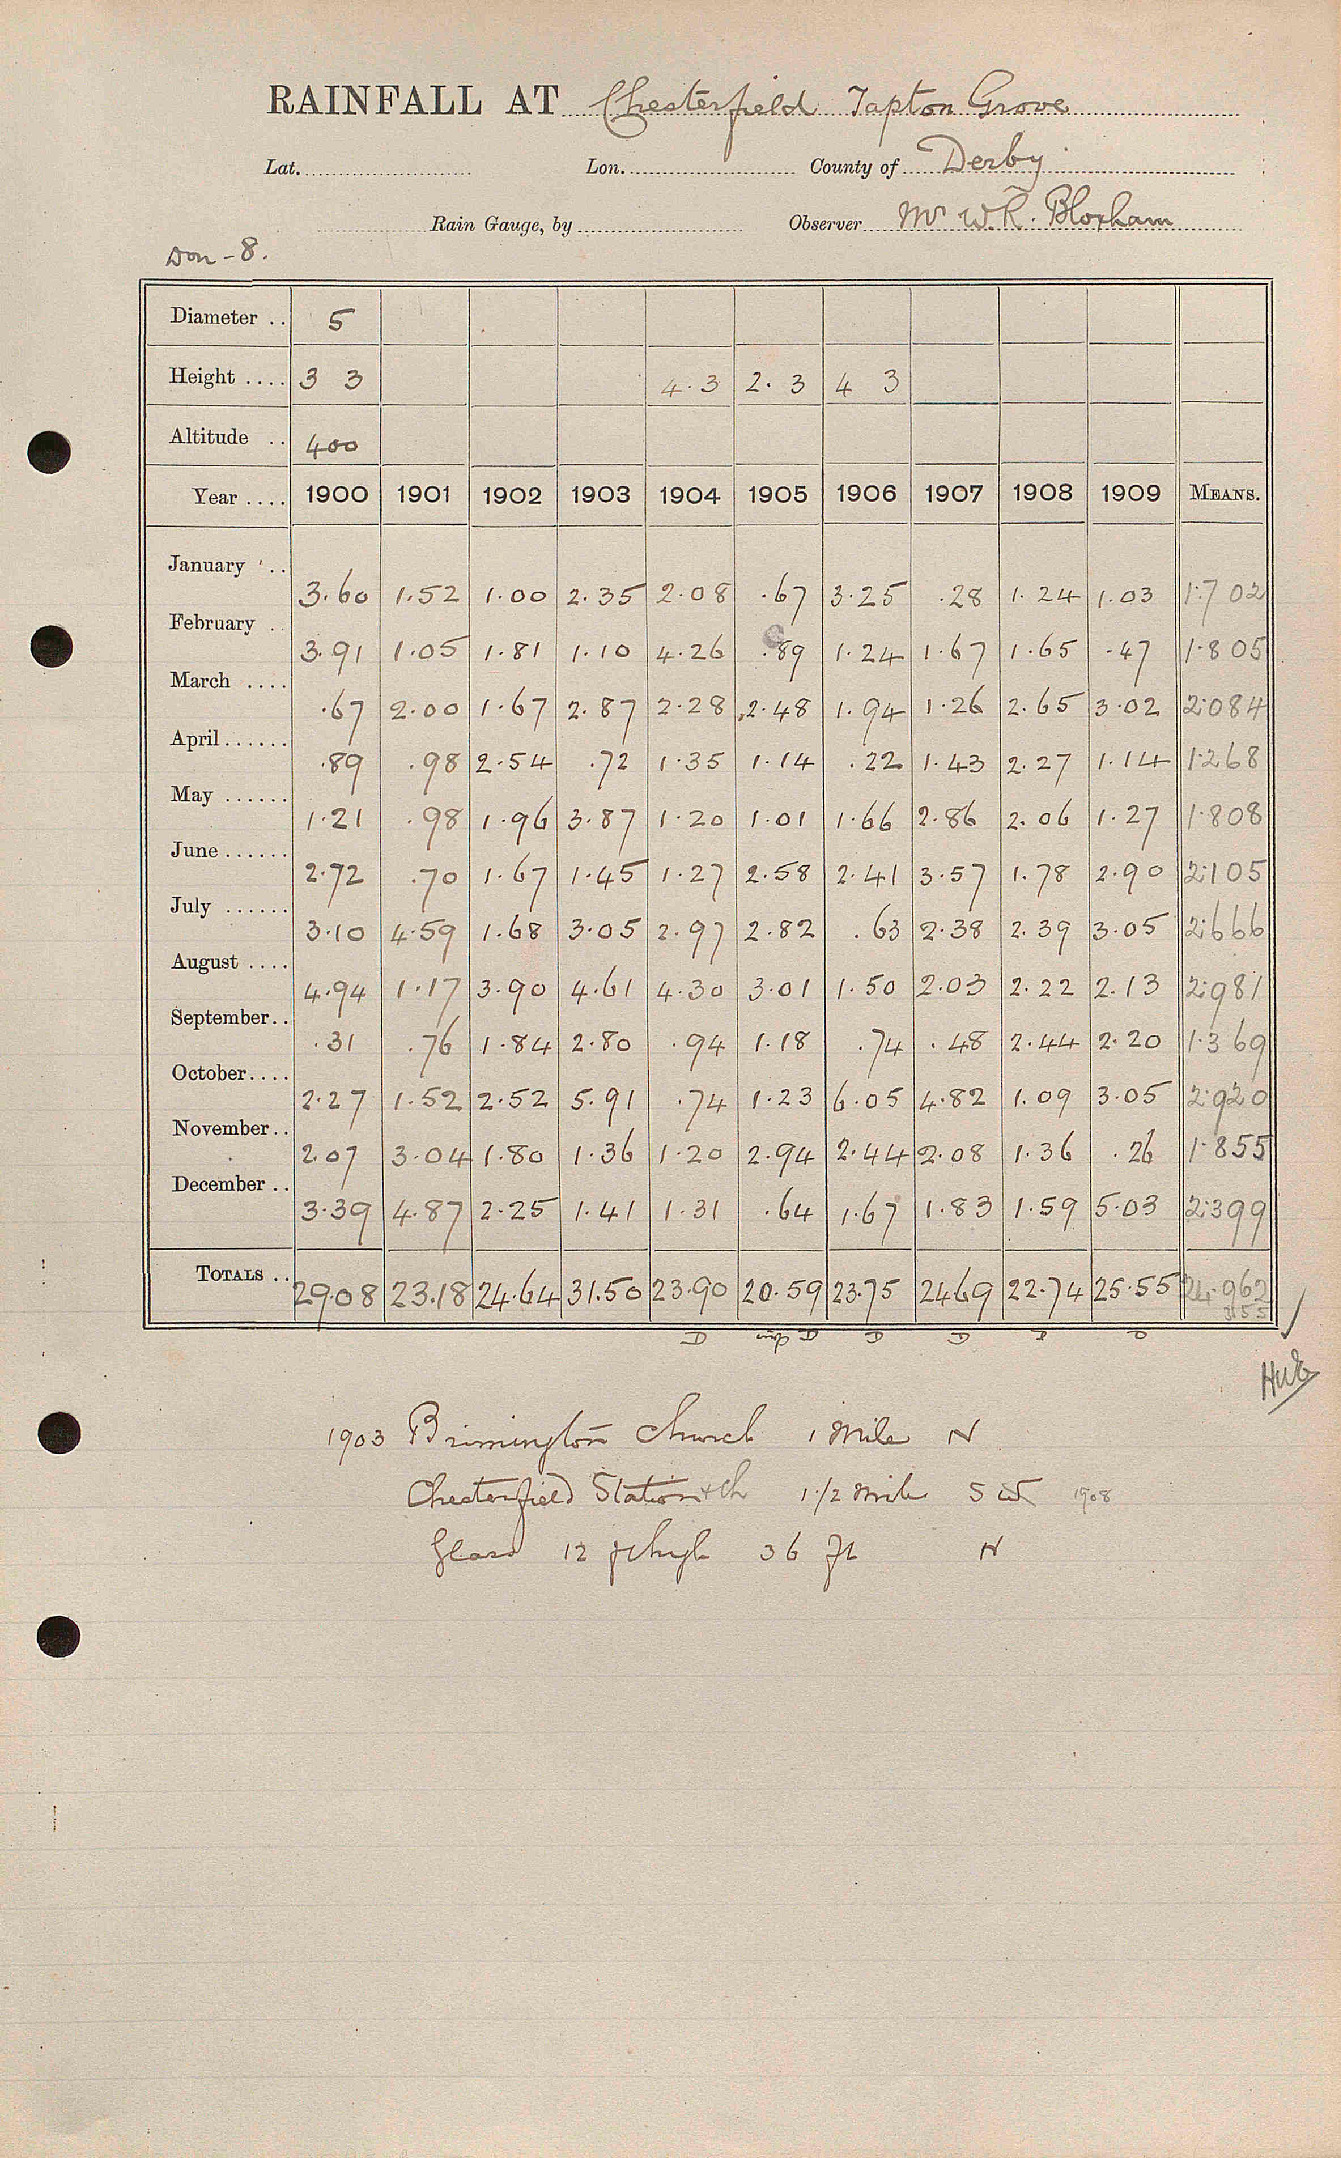 RAINFALL AT Chesterfield Tapton Grove
Lat. Lon. County of Derby
Rain Gauge, by Observer Mr W.R. Bloxham
Don - 8.
Diameter .. 5
Height .... 3 3 4.3 2.3 4 3
Altitude .. 400
Year .... 1900 1901 1902 1903 1904 1905 1906 1907 1908 1909 MEANS.
January .. 3.60 1.52 1.00 2.35 2.08 .67 3.25 .28 1.24 1.03 1.702
February .. 3.91 1.05 1.81 1.10 4.26 .89 1.24 1.67 1.65 .47 1.805
March .... .67 2.00 1.67 2.87 2.28 2.48 1.94 1.26 2.65 3.02 2.084
April ...... .89 .98 2.54 .72 1.35 1.14 .22 1.43 2.27 1.14 1.268
May ...... 1.21 .98 1.96 3.87 1.20 1.01 1.66 2.86 2.06 1.27 1.808
June ...... 2.72 .70 1.67 1.45 1.27 2.58 2.41 3.57 1.78 2.90 2.105
July ...... 3.10 4.59 1.68 3.05 2.97 2.82 .63 2.38 2.39 3.05 2.666
August .... 4.94 1.17 3.90 4.61 4.30 3.01 1.50 2.03 2.22 2.13 2.981
September.. .31 .76 1.84 2.80 .94 1.18 .74 .48 2.44 2.20 1.369
October.... 2.27 1.52 2.52 5.91 .74 1.23 6.05 4.82 1.09 3.05 2.920
November.. 2.07 3.04 1.80 1.36 1.20 2.94 2.44 2.08 1.36 .26 1.855
December .. 3.39 4.87 2.25 1.41 1.31 .64 1.67 1.83 1.59 5.03 2.399
TOTALS .. 29.08 23.18 24.64 31.50 23.90 20.59 23.75 24.69 22.74 25.55 24.962
1903 Brimington Church 1 mile N
Chesterfield Station + ch 1 1/2 mile SW 1908
Glass 12 ft high 36 ft N